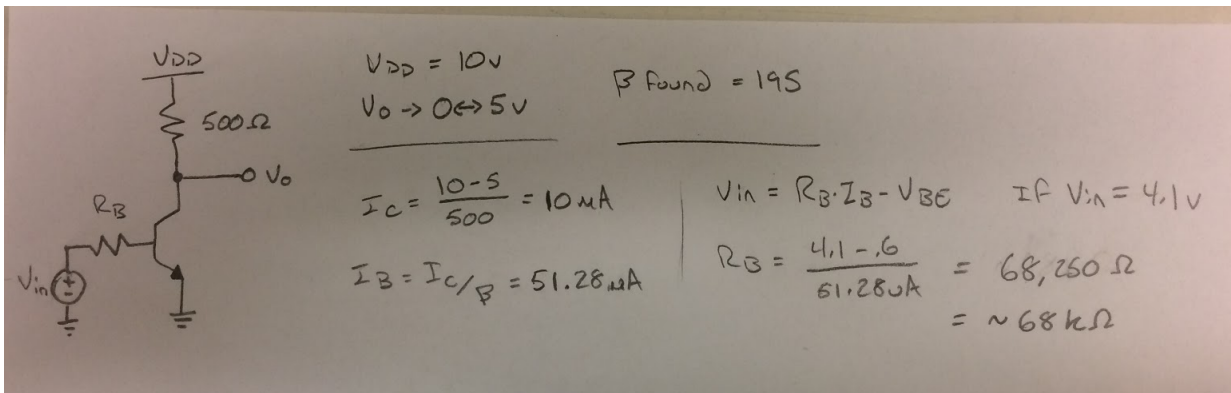 VDD
500Ω
Vo
RB
Vin
VDD = 10v
Vo → 0↔5v
β found = 195
IC = 10-5/500 = 10 μA
IB = IC/β = 51.28 μA
Vin = RB·IB - VBE If Vin = 4.1v
RB = 4.1-.6/51.28uA = 68,250 Ω
= ~68kΩ